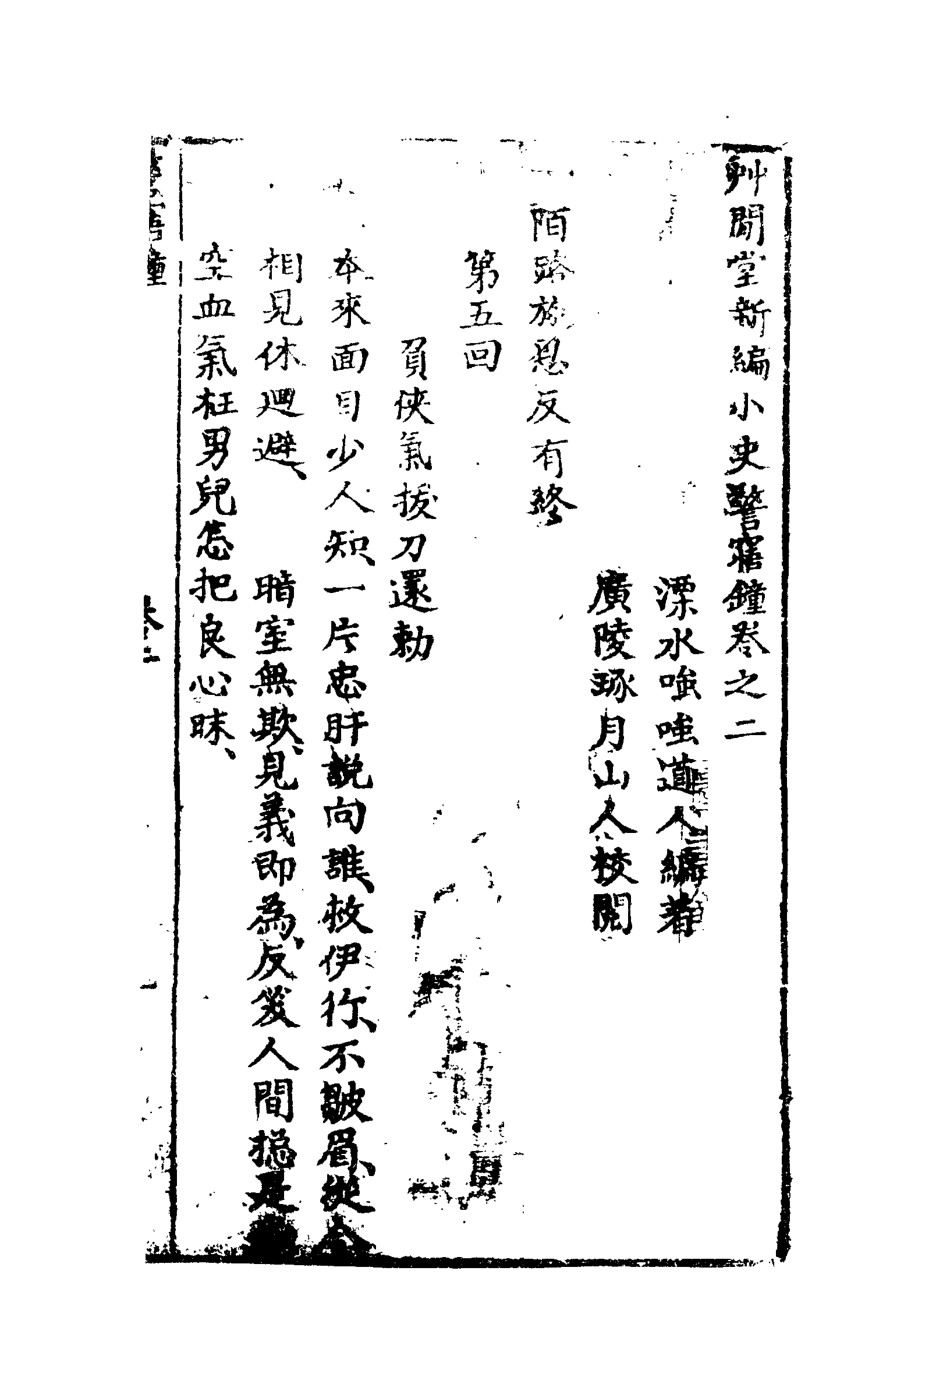 艸閒堂新編小史警寤鐘卷之二
溧水嗤嗤道人編著
廣陵琢月山人校閱
陌路施恩反有終
第五回
負俠氣拔刀還勅
本來面目少人知、一片忠肝說向誰、救伊行、不皺眉、從今
相見休迴避、　暗室無欺、見義即為、反笑人間揔是
空血氣枉男兒怎把良心昧、
鐘
卷二
一